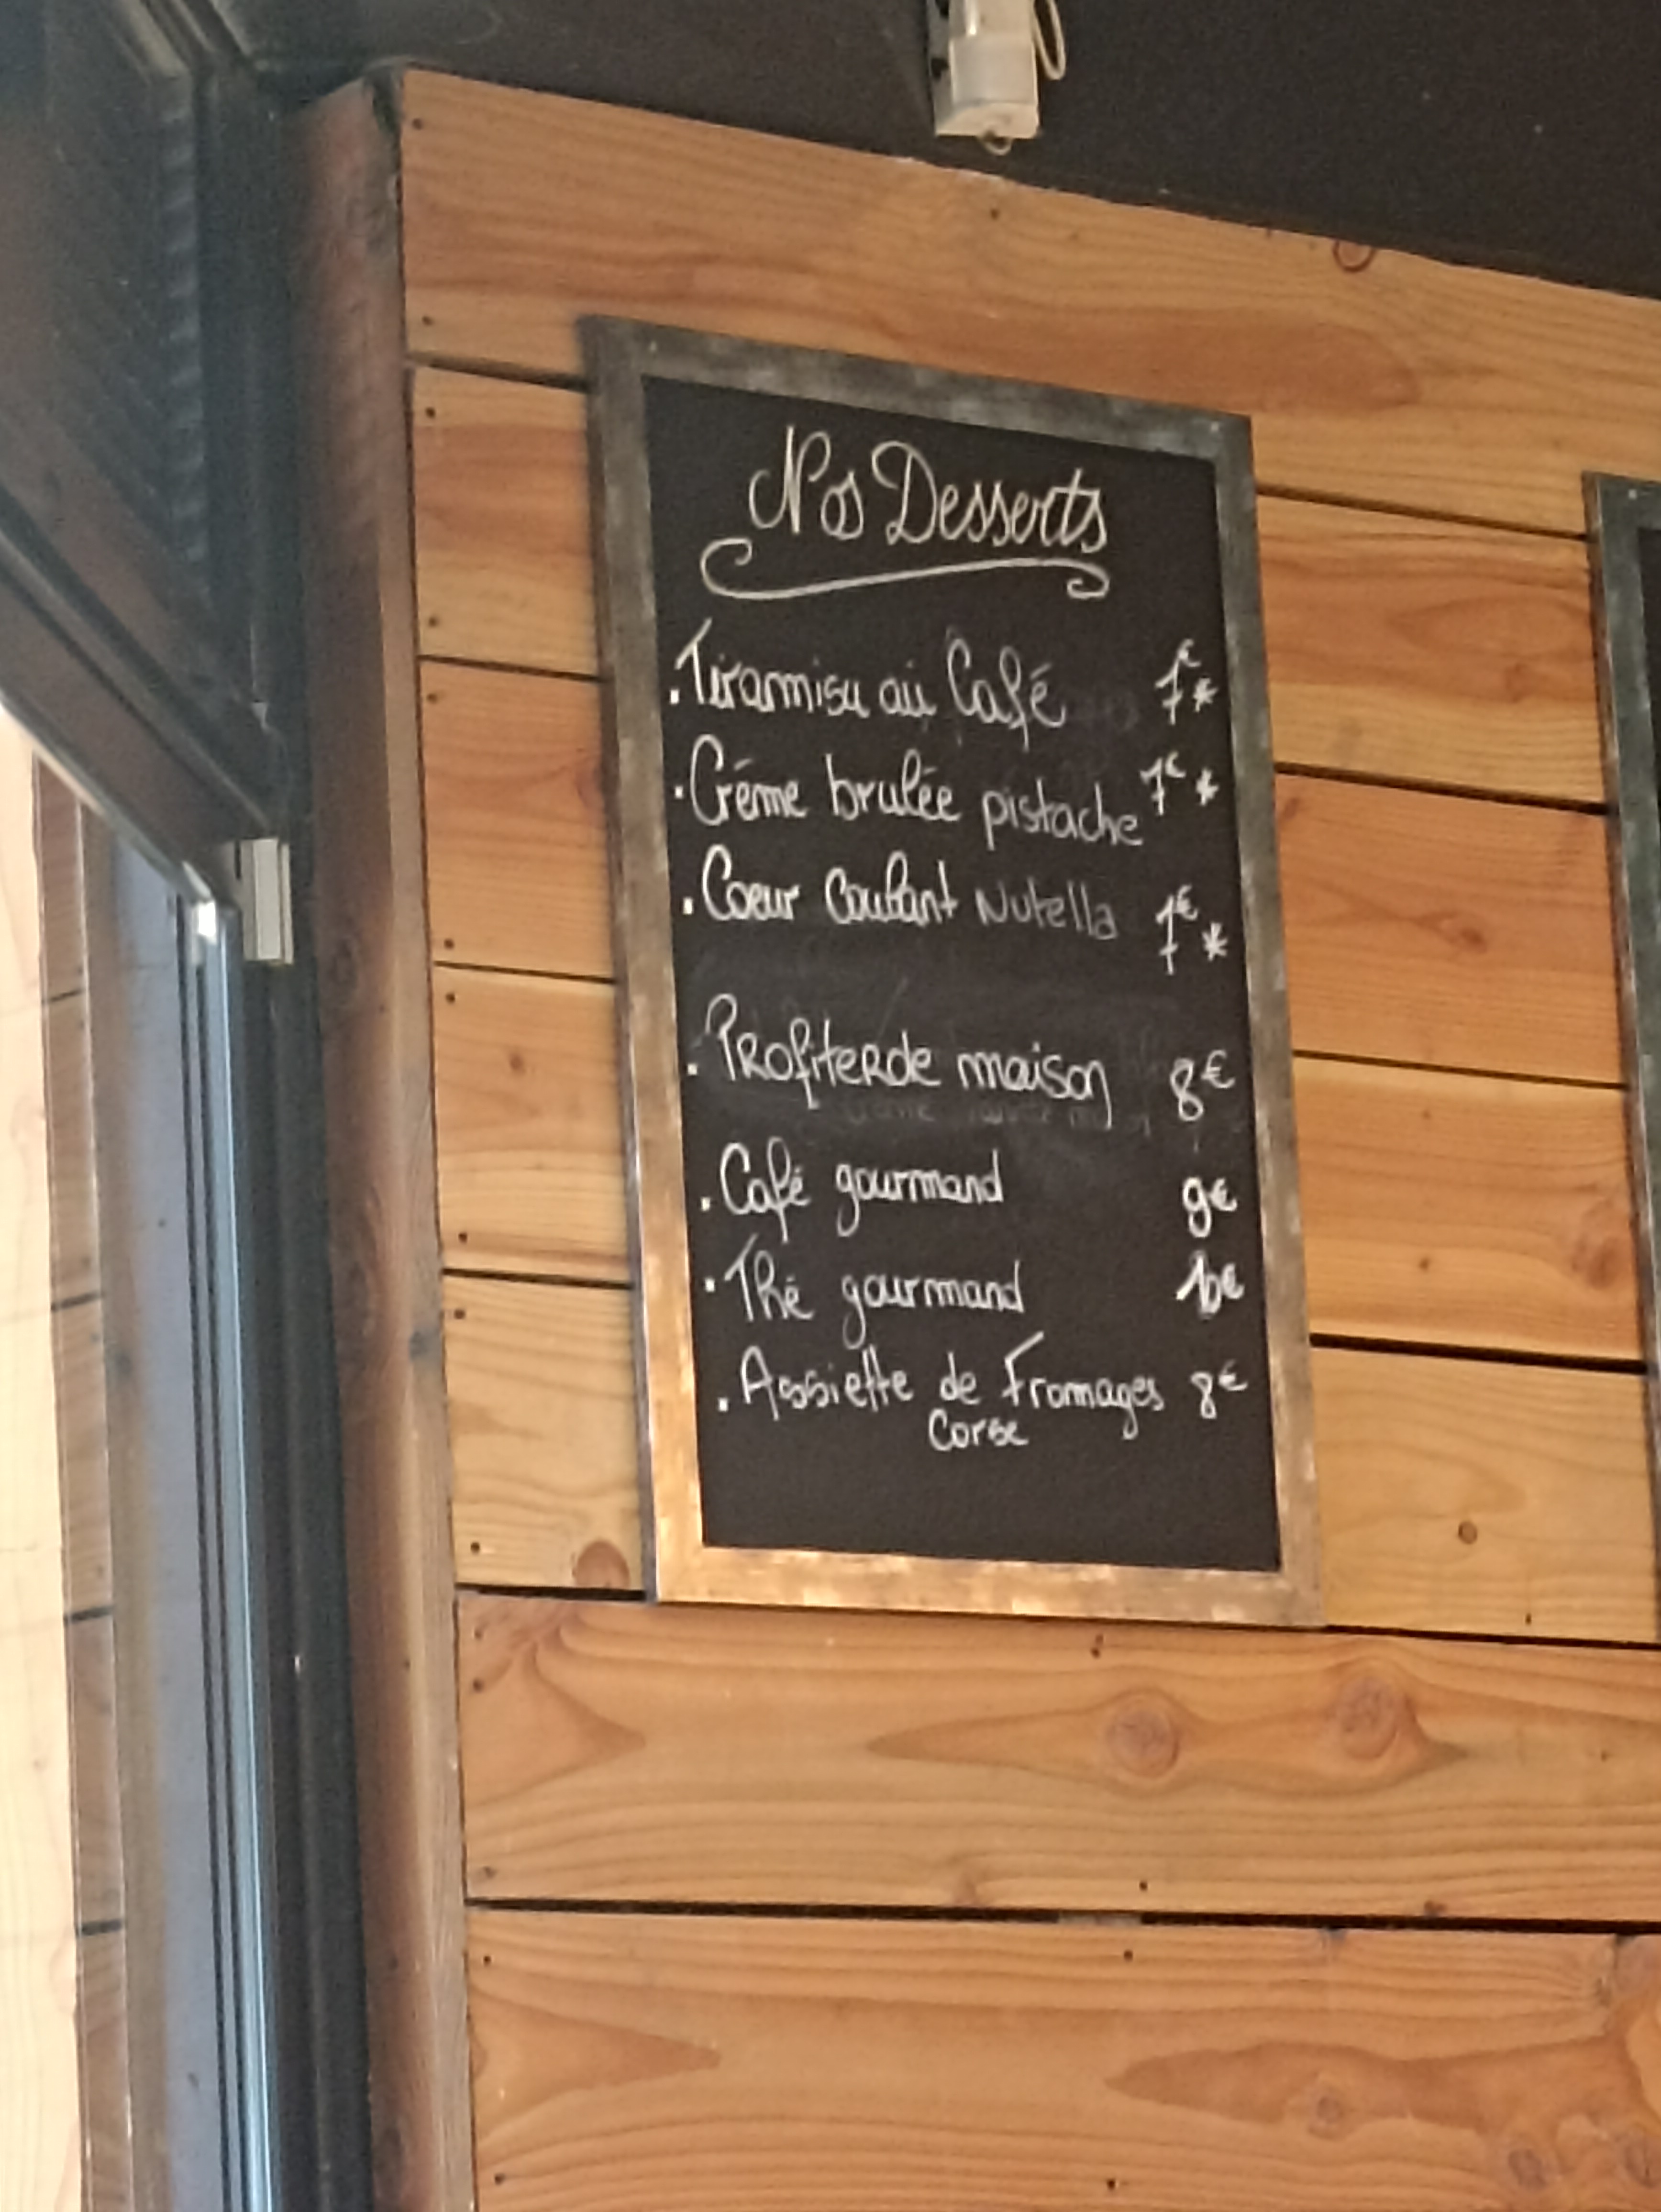 Nos Desserts
. Tiramisu au Café 7€ *
. Créme brulée pistache 7€ *
. Coeur Coulant Nutella 7€ *
. Profiterole maison 8€
. Café gourmand 9€
. Thé gourmand 10€
. Assiette de Fromages 8€
Corse